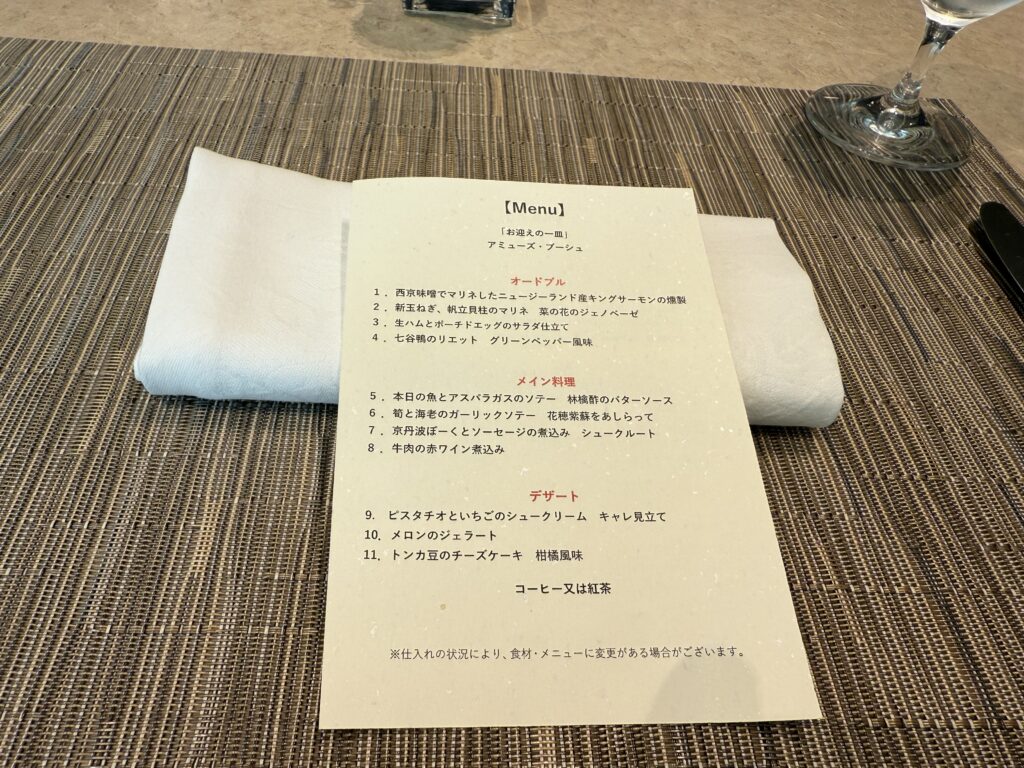 【Menu】
「お迎えの一皿」
アミューズ・ブーシュ
オードブル
1．西京味噌でマリネしたニュージーランド産キングサーモンの燻製
2．新玉ねぎ、帆立貝柱のマリネ　菜の花のジェノベーゼ
3．生ハムとポーチドエッグのサラダ仕立て
4．七谷鴨のリエット　グリーンペッパー風味
メイン料理
5．本日の魚とアスパラガスのソテー　林檎酢のバターソース
6．筍と海老のガーリックソテー　花穂紫蘇をあしらって
7．京丹波ぽーくとソーセージの煮込み　シュークルート
8．牛肉の赤ワイン煮込み
デザート
9.　ピスタチオといちごのシュークリーム　キャレ見立て
10．メロンのジェラート
11．トンカ豆のチーズケーキ　柑橘風味
コーヒー又は紅茶
※仕入れの状況により、食材・メニューに変更がある場合がございます。